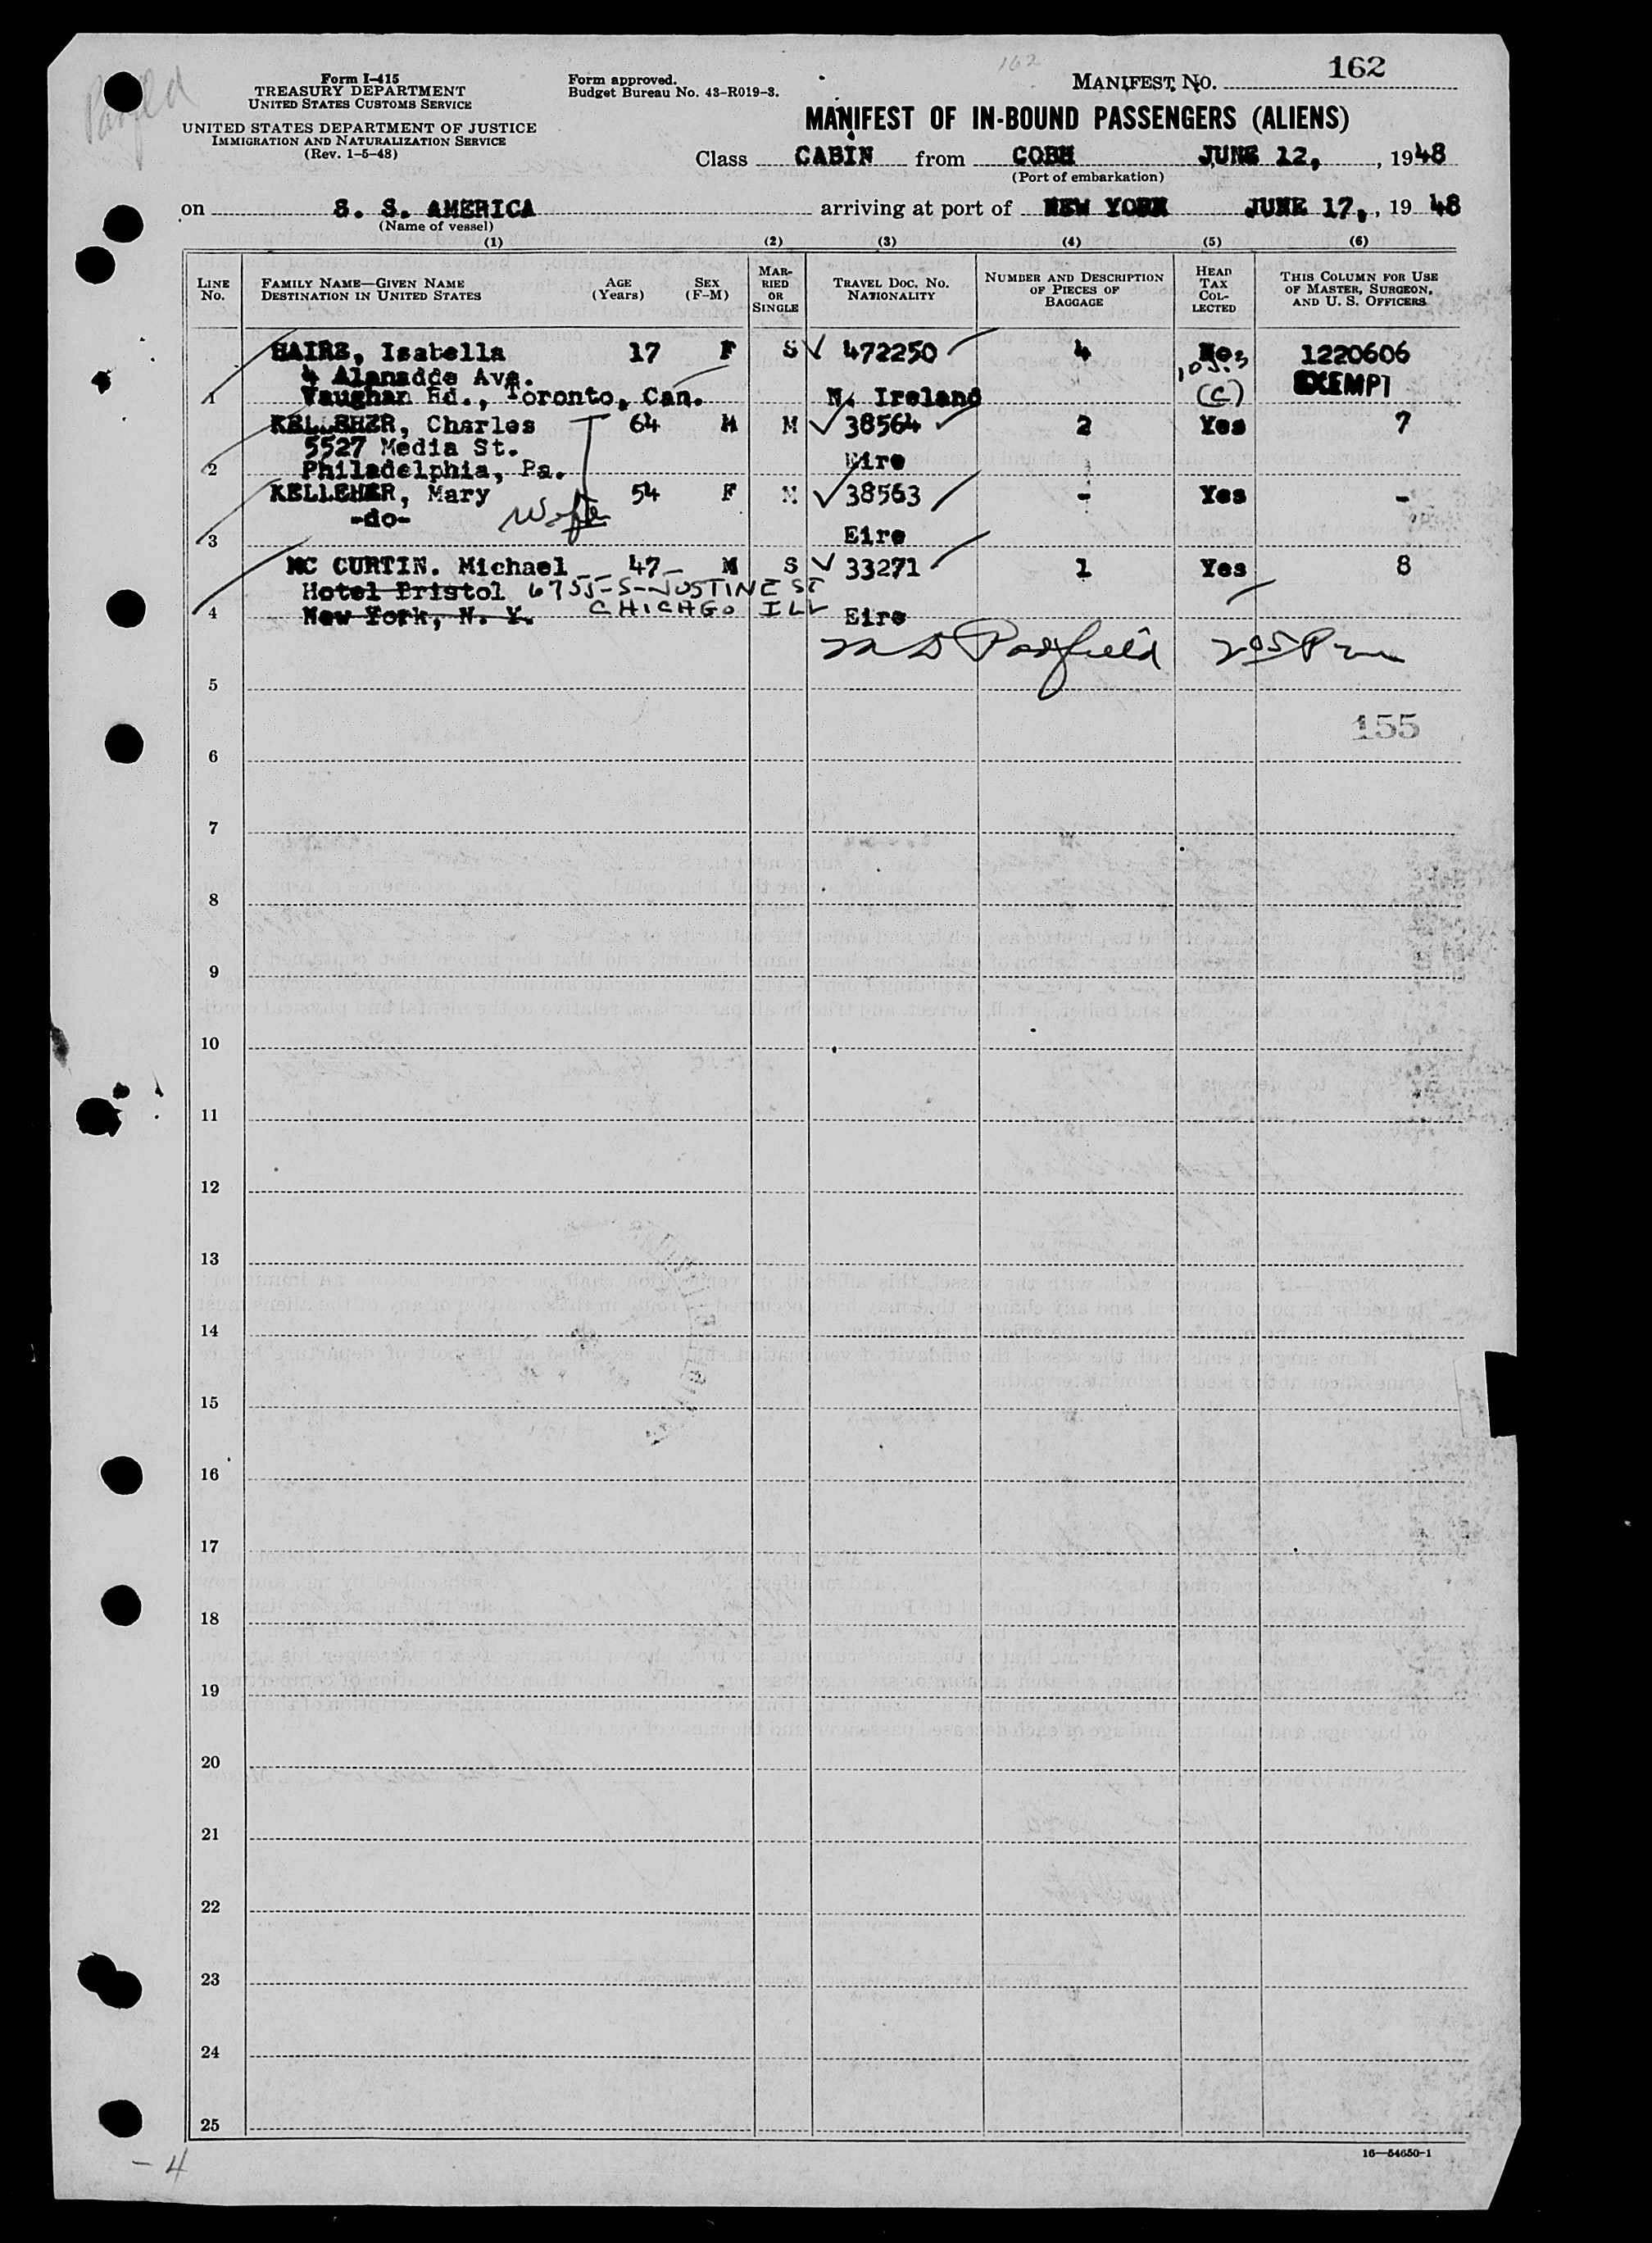 Form I-415
TREASURY DEPARTMENT
UNITED STATES CUSTOMS SERVICE
UNITED STATES DEPARTMENT OF JUSTICE
IMMIGRATION AND NATURALIZATION SERVICE
(Rev. 1-5-48)
Form approved.
Budget Bureau No. 43-R019-3.
162
MANIFEST NO. 162
MANIFEST OF IN-BOUND PASSENGERS (ALIENS)
Class CABIN from COBH JUNE 12, , 1948
(Port of embarkation)
on S. S. AMERICA arriving at port of NEW YORK JUNE 17, , 19 48
(Name of vessel)
(1) (2) (3) (4) (5) (6)
LINE No. FAMILY NAME—GIVEN NAME DESTINATION IN UNITED STATES AGE (Years) SEX (F-M) MARRIED OR SINGLE TRAVEL DOC. NO. NATIONALITY NUMBER AND DESCRIPTION OF PIECES OF BAGGAGE HEAD TAX COLLECTED THIS COLUMN FOR USE OF MASTER, SURGEON, AND U. S. OFFICERS
HAIRE, Isabella 17 F S 472250 4 1220606
4 Alanadde Ave. EXEMPT
1 Vaughan Rd., Toronto, Can. N. Ireland (C)
KELLEHER, Charles 64 M M 38564 2 Yes 7
5527 Media St.
2 Philadelphia, Pa. Eire
KELLEHER, Mary 54 F M 38563 - Yes -
-do- Wife
3 Eire
MC CURTIN. Michael 47 M S 33271 1 Yes 8
Hotel Bristol 6755-S-JUSTINE ST
4 New York, N. Y. CHICAGO ILL Eire
M D Padfield 205 Pm
5
155
6
7
8
9
10
11
12
13
14
15
16
17
18
19
20
21
22
23
24
25
16—54650-1
- 4